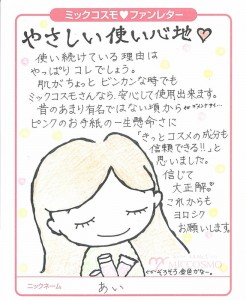 ミックコスモ♥ファンレター
やさしい使い心地♡
使い続けている理由は
やっぱりコレでしょう。
肌がちょっとビンカンな時でも
ミックコスモさんなら、安心して使用出来ます。
昔のあまり有名ではない頃から
ピンクのお手紙の一生懸命さに
「きっとコスメの成分も
信頼できる!!」と
思いました。
信じて
大正解♡
これからも
ヨロシク
お願いします。
MICCOSMO
ニックネーム
あい